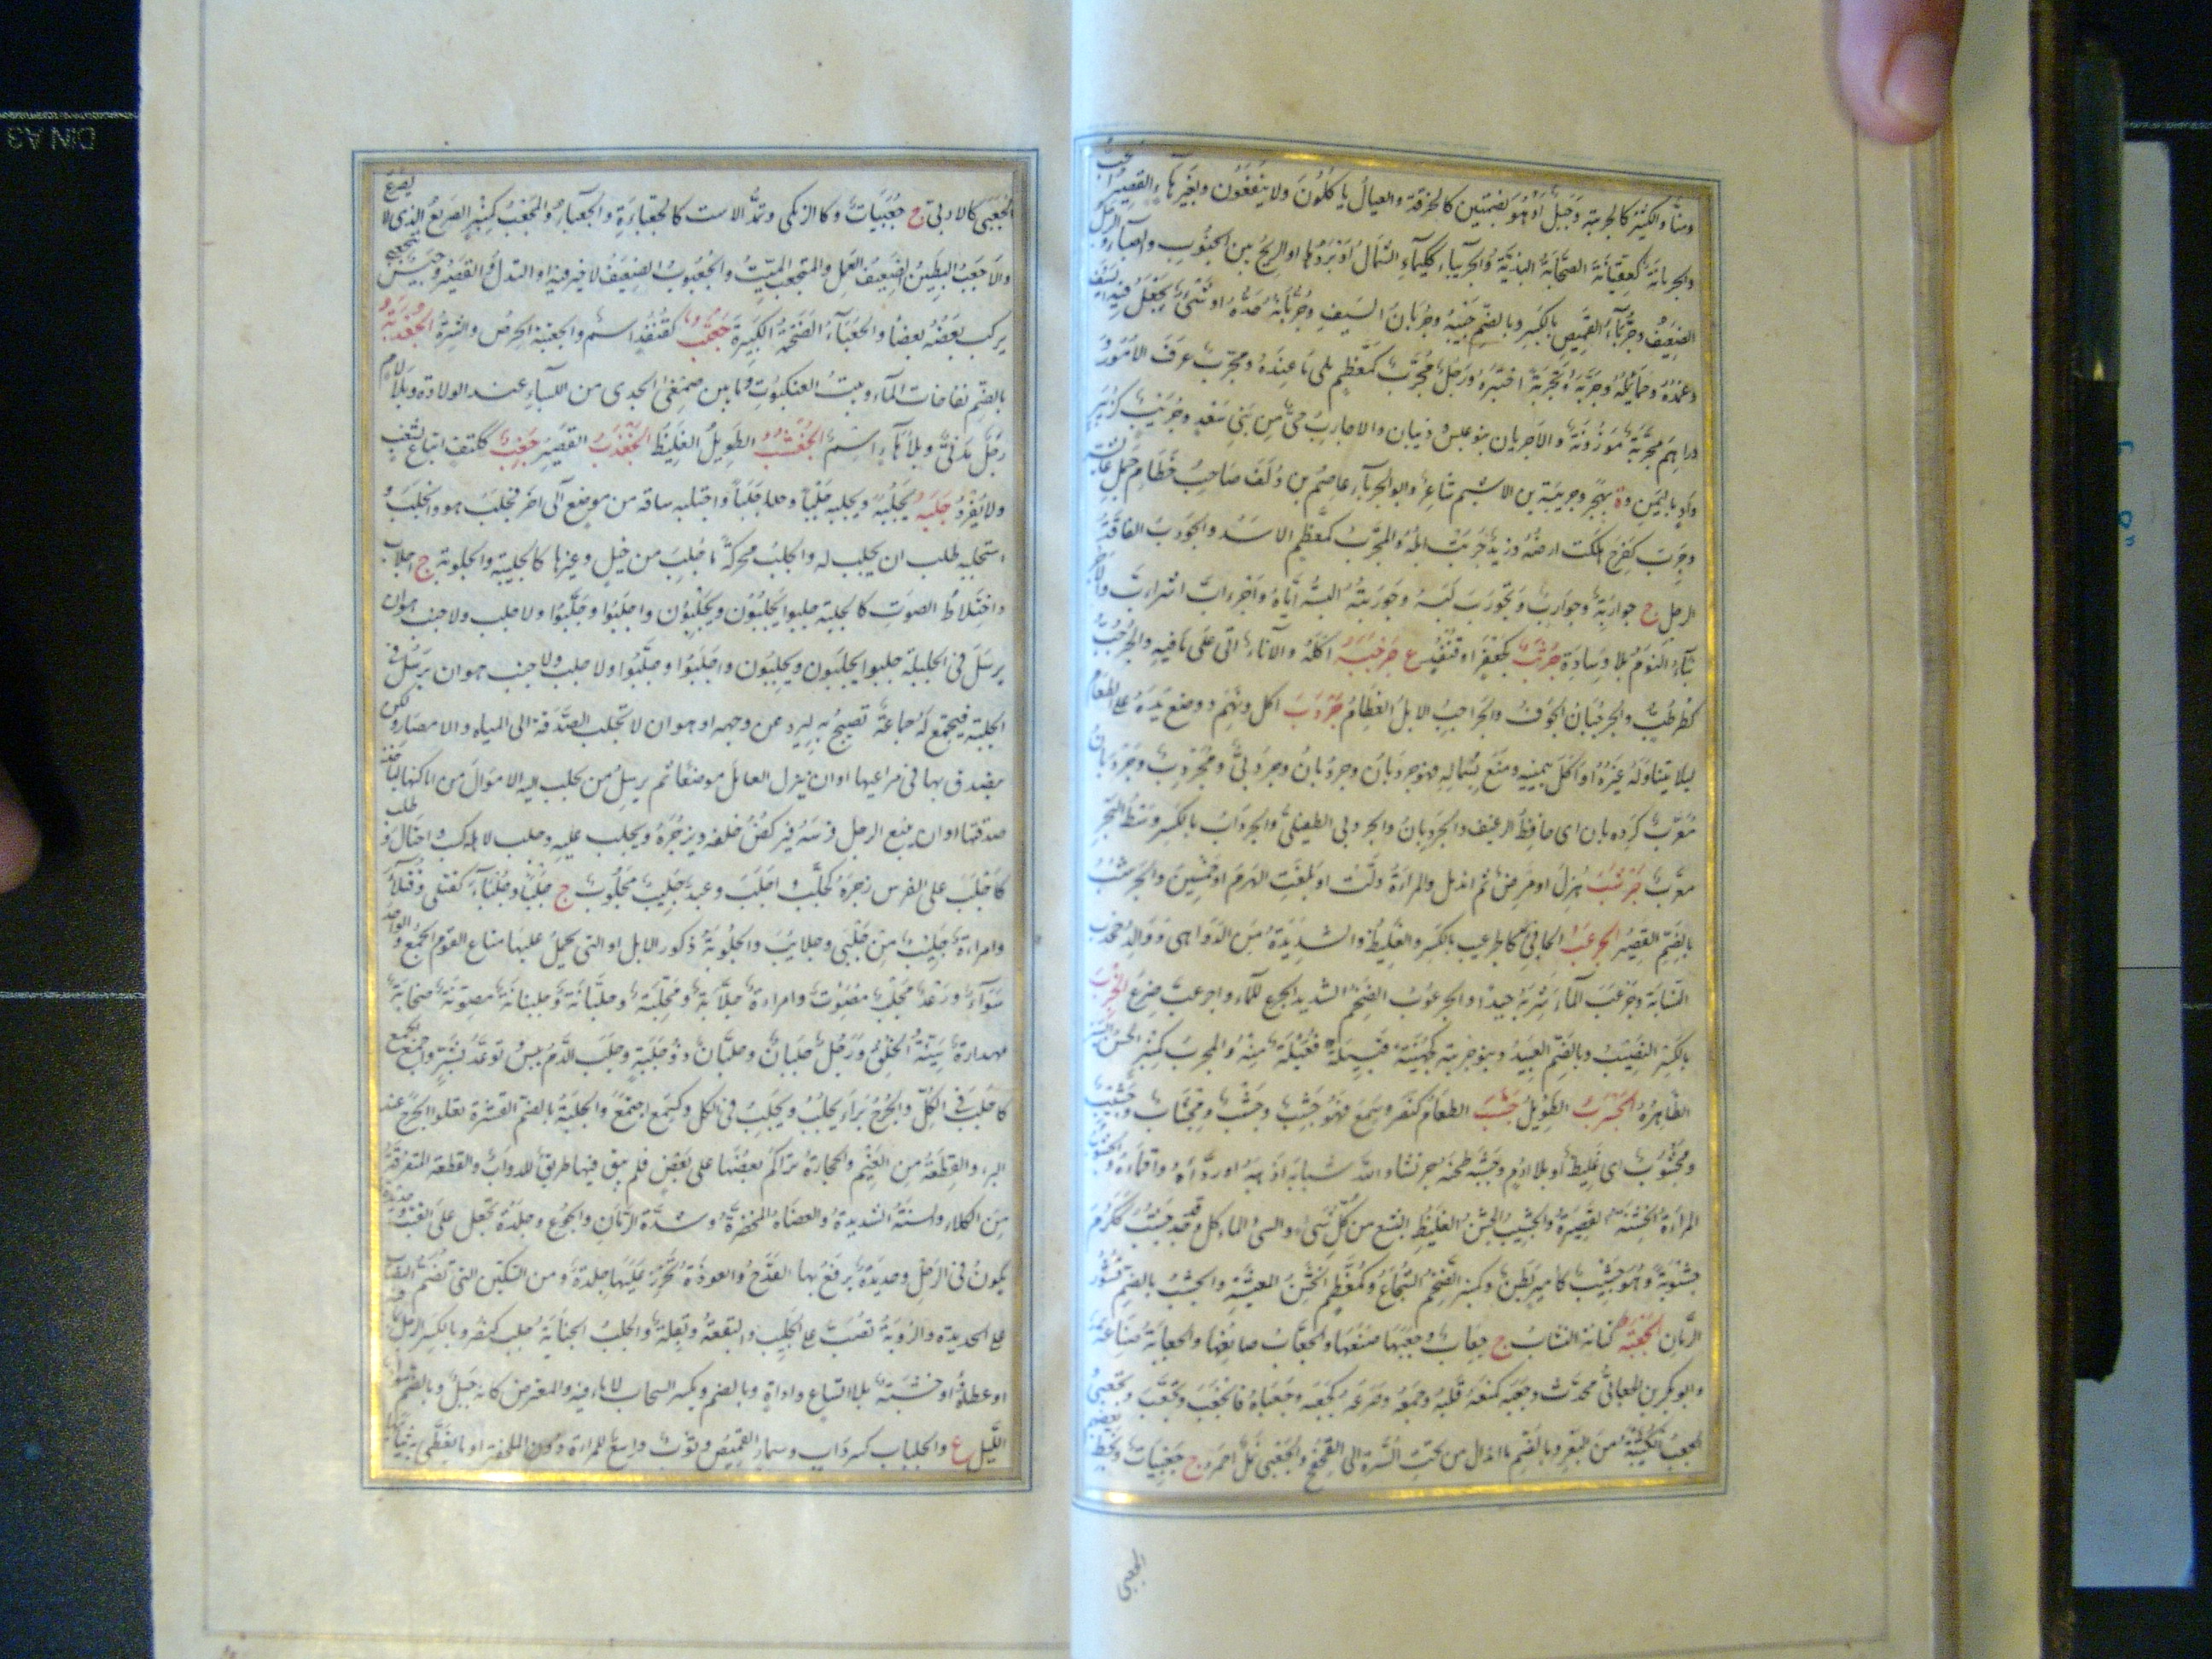 ومنا والكثير كالجربة وجبل أو هو بضمتين كالحزقة والعيال يأكلون ولا ينفعون وبغير هاء القصير الخب
والجربانة كعفتانة الصخابة البذية والجربياء ككيمياء الشمال أو بردها أو الريح بين الجنوب والصبا والرجل
الضعيف وجرباء القميص بالكسر وبالضم جيبه وجربان السيف وجربانه حده أو شيء يجعل فيه السيف
وغمده وحمائله وجربه تجربة اختبره ورجل مجرب كمعظم بلي ما عنده ومجرب عرف الأمور و
دراهم مجربة موزونة والأجربان بنو عبس وذبيان والأجارب حي من بني سعد وجريب كزبير
واد باليمن وة بهجر وجريبة بن الأشيم شاعر وأبو الجرباء عاصم بن دلف صاحب خطام جمل عائشة
وجرب كفرح هلكت أرضه وزيد جربت إبله والمجرب كمعظم الأسد والجورب لفافة
الرجل ج جواربة وجوارب وتجورب لبسه وجوربته ألبسته إياه واجرأب اشرأب والاجر
نباء النوم بلا وسادة جرثب كجعفر أو قنفذ ع جرجبه أكله والإناء أتى على ما فيه والجرجب
كطرطب والجرجبان الجوف والجراجب الإبل العظام جردب أكل ونهم ووضع يده على الطعام
لئلا يتناوله غيره أو أكل بيمينه ومنع بشماله فهو جردبان وجردبان وجردبي ومجردب وجردبان
معرب كرده بان أي حافظ الرغيف والجردبان والجردبي الطفيلي والجرداب بالكسر وسط البحر
معرب جرشب هزل أو مرض ثم اندمل والمرأة ولت أو بلغت الهرم أو خمسين والجرشب
بالضم القصير الجرعب الجافي كالجرعيب بالكسر والغليظ والشديدة من الدواهي ووالد جخدب
النسابة وجرعب الماء شربه جيدا والجرعوب الضخم الشديد الجرع للماء واجرعب صرع الجزب
بالكسر النصيب وبالضم العبيد وبنو جزيبة كجهينة قبيلة فعيلة منه والمجزب كمنبر الحسن السبر
الطاهره الجسرب الطويل جشب الطعام كنصر وسمع فهو جشب وجشب ومجشاب وجشيب
ومجشوب أي غليظ أو بلا أدم وجشبه طحنه جريشا والله شبابه أذهبه أو رداه وأقمأه والجشوب
المرأة الخشنة القصيرة والجشيب الخشن الغليظ البشع من كل شيء والسيئ المأكل وقد جشب ككرم
جشوبة وهو جشيب كأمير بطن وكمنبر الضخم الشجاع وكمعظم الخشن المعيشة والجشب بالضم قشور
الرمان الجعبة كنانة النشاب ج جعاب وجعبها صنعها والجعاب صانعها والجعابة صناعته
وأبو بكر بن الجعابي محدث وجعبه كمنعه قلبه وجمعه وصرعه كجعبه وجعباه فانجعب وتجعب وتجعبى
الجعب الكثيبة من البعر وبالضم ما اندال من تحت السرة إلى القحقح والجعبى نمل أحمر ج جعبيات
الجعبى
الجعبى كالأربى ج جعبيات وكالزمكى وتمد الاست كالجعباءة والجعباء والمجعب كمنبر الصريع الذي لا يصرع
والأجعب البطين الضعيف العمل والمتجعب الميت والجعبوب الضعيف لا خير فيه أو النذل والقصير وجيش يتجعبى
يركب بعضه بعضا والجعباء الضخمة الكبيرة جعنب كقنفذ اسم والجعنبة الحرص والشره الجعدبة
بالضم نفاخات الماء وبيت العنكبوت وما بين صمغي الجدي من اللباء عند الولادة وبلا لام
رجل مدني وبلا هاء اسم الجعشب الطويل الغليظ الجعنب القصير جغب ككتف اتباع لشغب
ولا يفرد جلبه يجلبه ويجلبه جلبا وجلبا واجتلبه ساقه من موضع إلى آخر فجلب هو وانجلب و
استجلبه طلب أن يجلب له والجلب محركة ما جلب من خيل وغيرها كالجليبة والجلوبة ج أجلاب
واختلاط الصوت كالجلبة جلبوا يجلبون ويجلبون وأجلبوا وجلبوا ولا جلب ولا جنب هو أن
يرسل في الحلبة جلبوا يجلبون ويجلبون وأجلبوا وجلبوا ولا جلب ولا جنب هو أن يرسل في
الحلبة فيجتمع له جماعة تصيح به ليرد عن وجهه أو هو أن لا تجلب الصدقة إلى المياه والأمصار ولكن
يصدق بها في مراعيها أو أن ينزل العامل موضعا ثم يرسل من يجلب إليه الأموال من أماكنها ليأخذ
صدقتها أو أن يتبع الرجل فرسه فيركض خلفه ويزجره ويجلب عليه وجلب لأهله كسب احتال وطلب
كأجلب على الفرس زجره كجلب وأجلب وعبد جليب مجلوب ج جلبى وجلباء كقتلى وقتلاء
وامرأة جليب من جلبى وجلائب والجلوبة ذكور الإبل أو التي يحمل عليها متاع القوم الجمع والواحد
سواء ورعد مجلب مصوت وامرأة جلابة ومجلبة وجلبانة وجلبنانة مصوتة صخابة
مهذارة سيئة الخلق ورجل جلبان وجلبان ذو جلبة وجلب الدم يبس توعد بشر وجمع الجمع
كأجلب في الكل والجرح برأ يجلب ويجلب في الكل وكسمع اجتمع والجلبة بالضم القشرة تعلو الجرح عند
البرء والقطعة من الغيم والحجارة تراكم بعضها على بعض فلم يبق فيها طريق للدواب والقطعة المتفرقة
من الكلاء والسنة الشديدة والعضاه المخضرة وشدة الزمان والجوع وجلدة تجعل على القتب وحديدة
يكون في الرحل وحديدة يرفع بها القدح والعوذة تخرز عليها جلدة ومن السكين التي تضم النصاب
على الحديدة والروبة تصب على الحليب والبقعة وبقلة والجلب الجناية جلب كنصر وبالكسر الرحل بما
أو غطاؤه أو خشبه بلا أنساع وأداة وبالضم ويكسر السحاب لا ماء فيه والمعترض كأنه جبل وبالضم سواد
الليل ع والجلباب كسرداب وسنمار القميص وثوب واسع للمرأة دون الملحفة أو ما يغطى به ثيابها